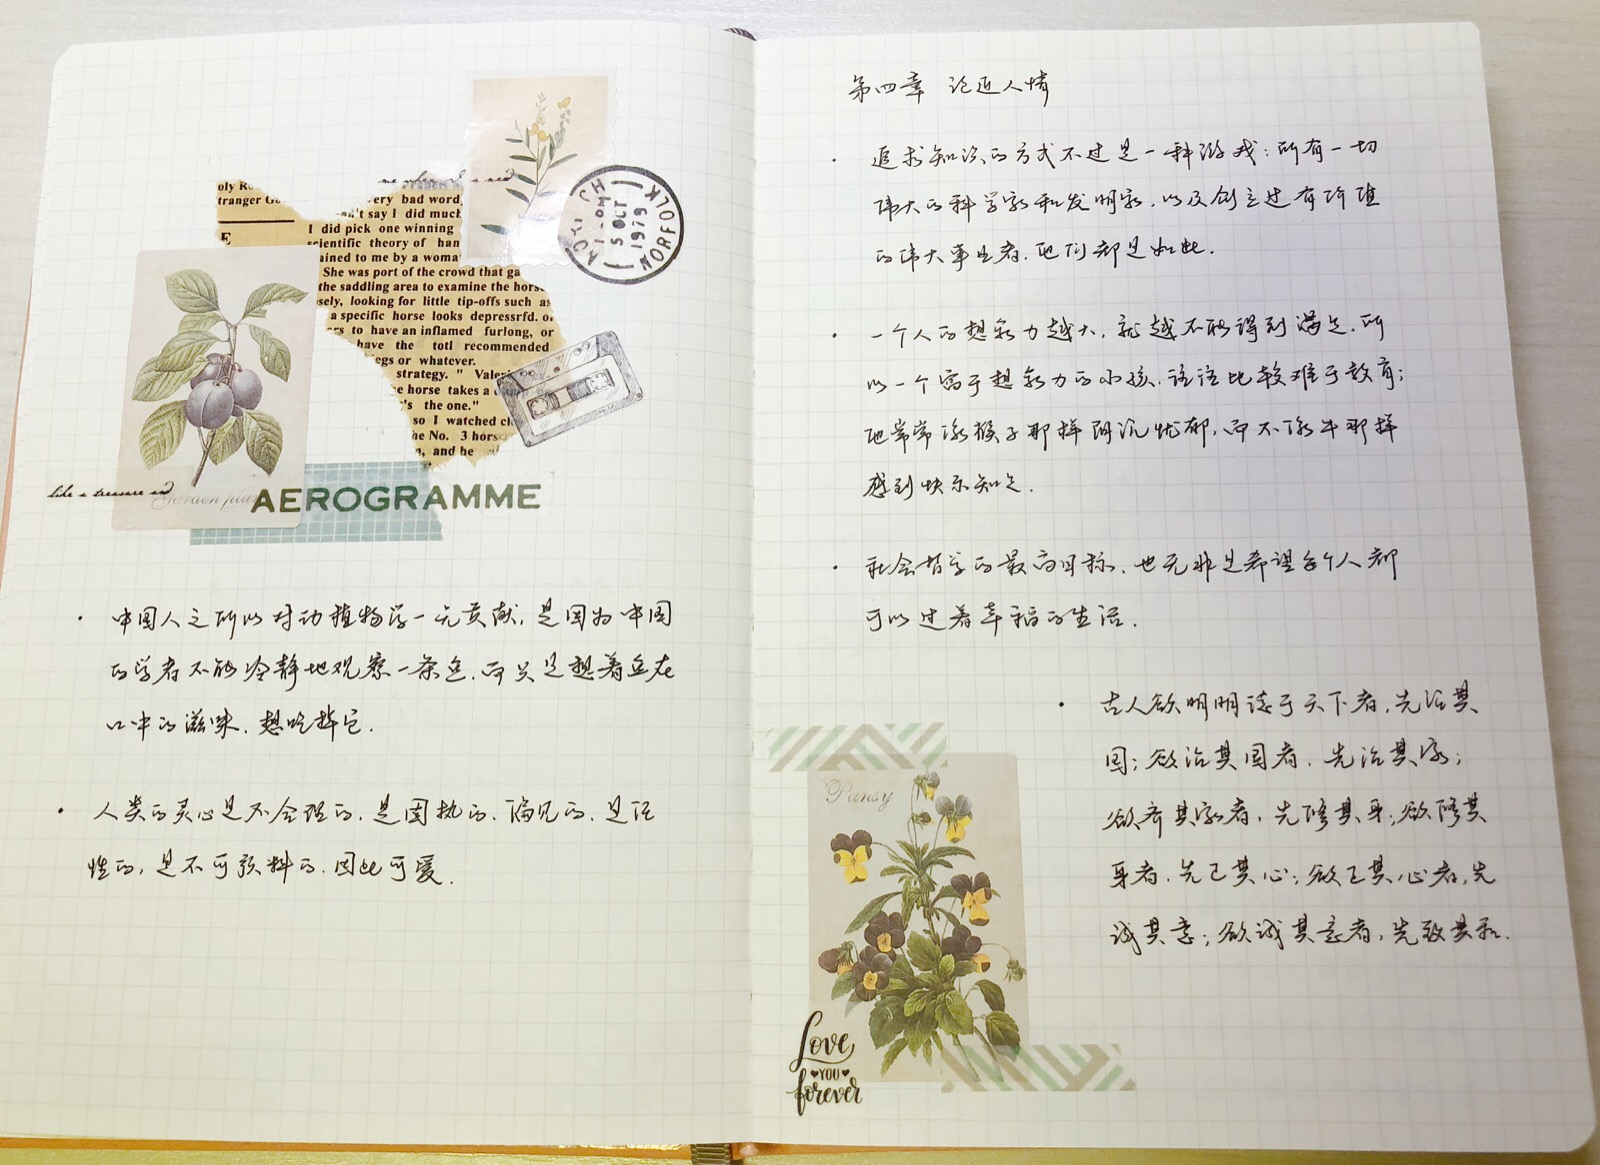 me when I need
oly Ro
tranger Go
very bad word,
n't say I did much
E
I did pick one winning
scientific theory of han
ained to me by a woma
She was port of the crowd that ga
the saddling area to examine the horse
sely, looking for little tip-offs such as
a specific horse looks depressrfd. or
ers to have an inflamed furlong, or
have the totl recommended
egs or whatever.
strategy. " Valeri
e horse takes a
's the one."
so I watched cl
he No. 3 horse
n, and he
5 OCT
1979
NORFOLK
like a treasure and
Garden plu
AEROGRAMME
· 中国人之所以对动植物学一无贡献，是因为中国
的学者不能冷静地观察一条鱼，而只是想着鱼在
口中的滋味，想吃掉它.
· 人类的灵心是不合理的，是固执的，偏见的，是任
性的，是不可预料的，因此可爱.
第四章 论近人情
· 追求知识的方式不过是一种游戏；所有一切
伟大的科学家和发明家，以及创立过有价值
的伟大事业者，他们都是如此.
· 一个人的想象力越大，就越不能得到满足，所
以一个富于想象力的小孩，往往比较难于教育；
他常常像猴子那样阴沉忧郁，而不像牛那样
感到快乐知足.
· 社会哲学的最高目标，也无非是希望每个人都
可以过着幸福的生活.
· 古人欲明明德于天下者，先治其
国；欲治其国者，先治其家；
欲齐其家者，先修其身；欲修其
身者，先正其心；欲正其心者，先
诚其意；欲诚其意者，先致其知.
Pansy
Love
YOU
forever